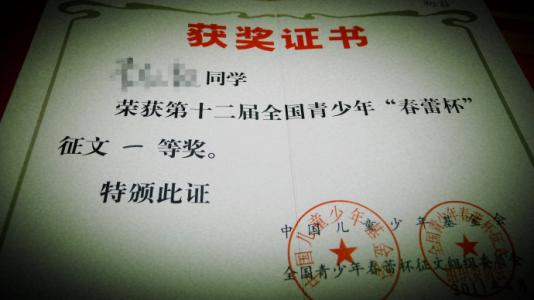 获奖证书
同学
荣获第十二届全国青少年“春蕾杯”
征文 一 等奖。
特颁此证
中国儿童少年基金会
全国青少年春蕾杯征文组织委员会